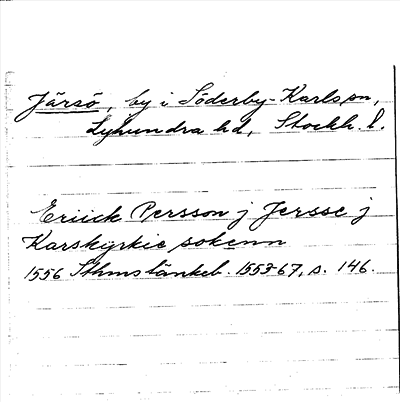 Järsö, by i Söderby-Karls sn,
Lyhundra hd, Stockh. l.
Eriick Persson j Jersse j
Karskyrkie sokenn
1556 Sthms tänkeb. 1553-67, s. 146.